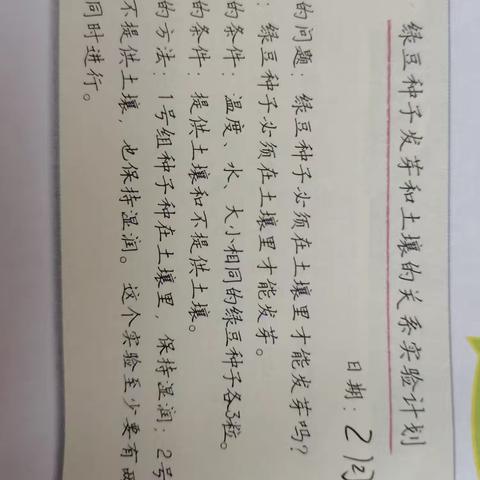 绿豆种子发芽和土壤的关系实验计划
日期：2
的问题：绿豆种子必须在土壤里才能发芽吗？
：绿豆种子必须在土壤里才能发芽。
的条件：温度、水、大小相同的绿豆种子各3粒。
的条件：提供土壤和不提供土壤。
的方法：1号组种子种在土壤里，保持湿润；2号
不提供土壤，也保持湿润。这个实验至少要有两
同时进行。